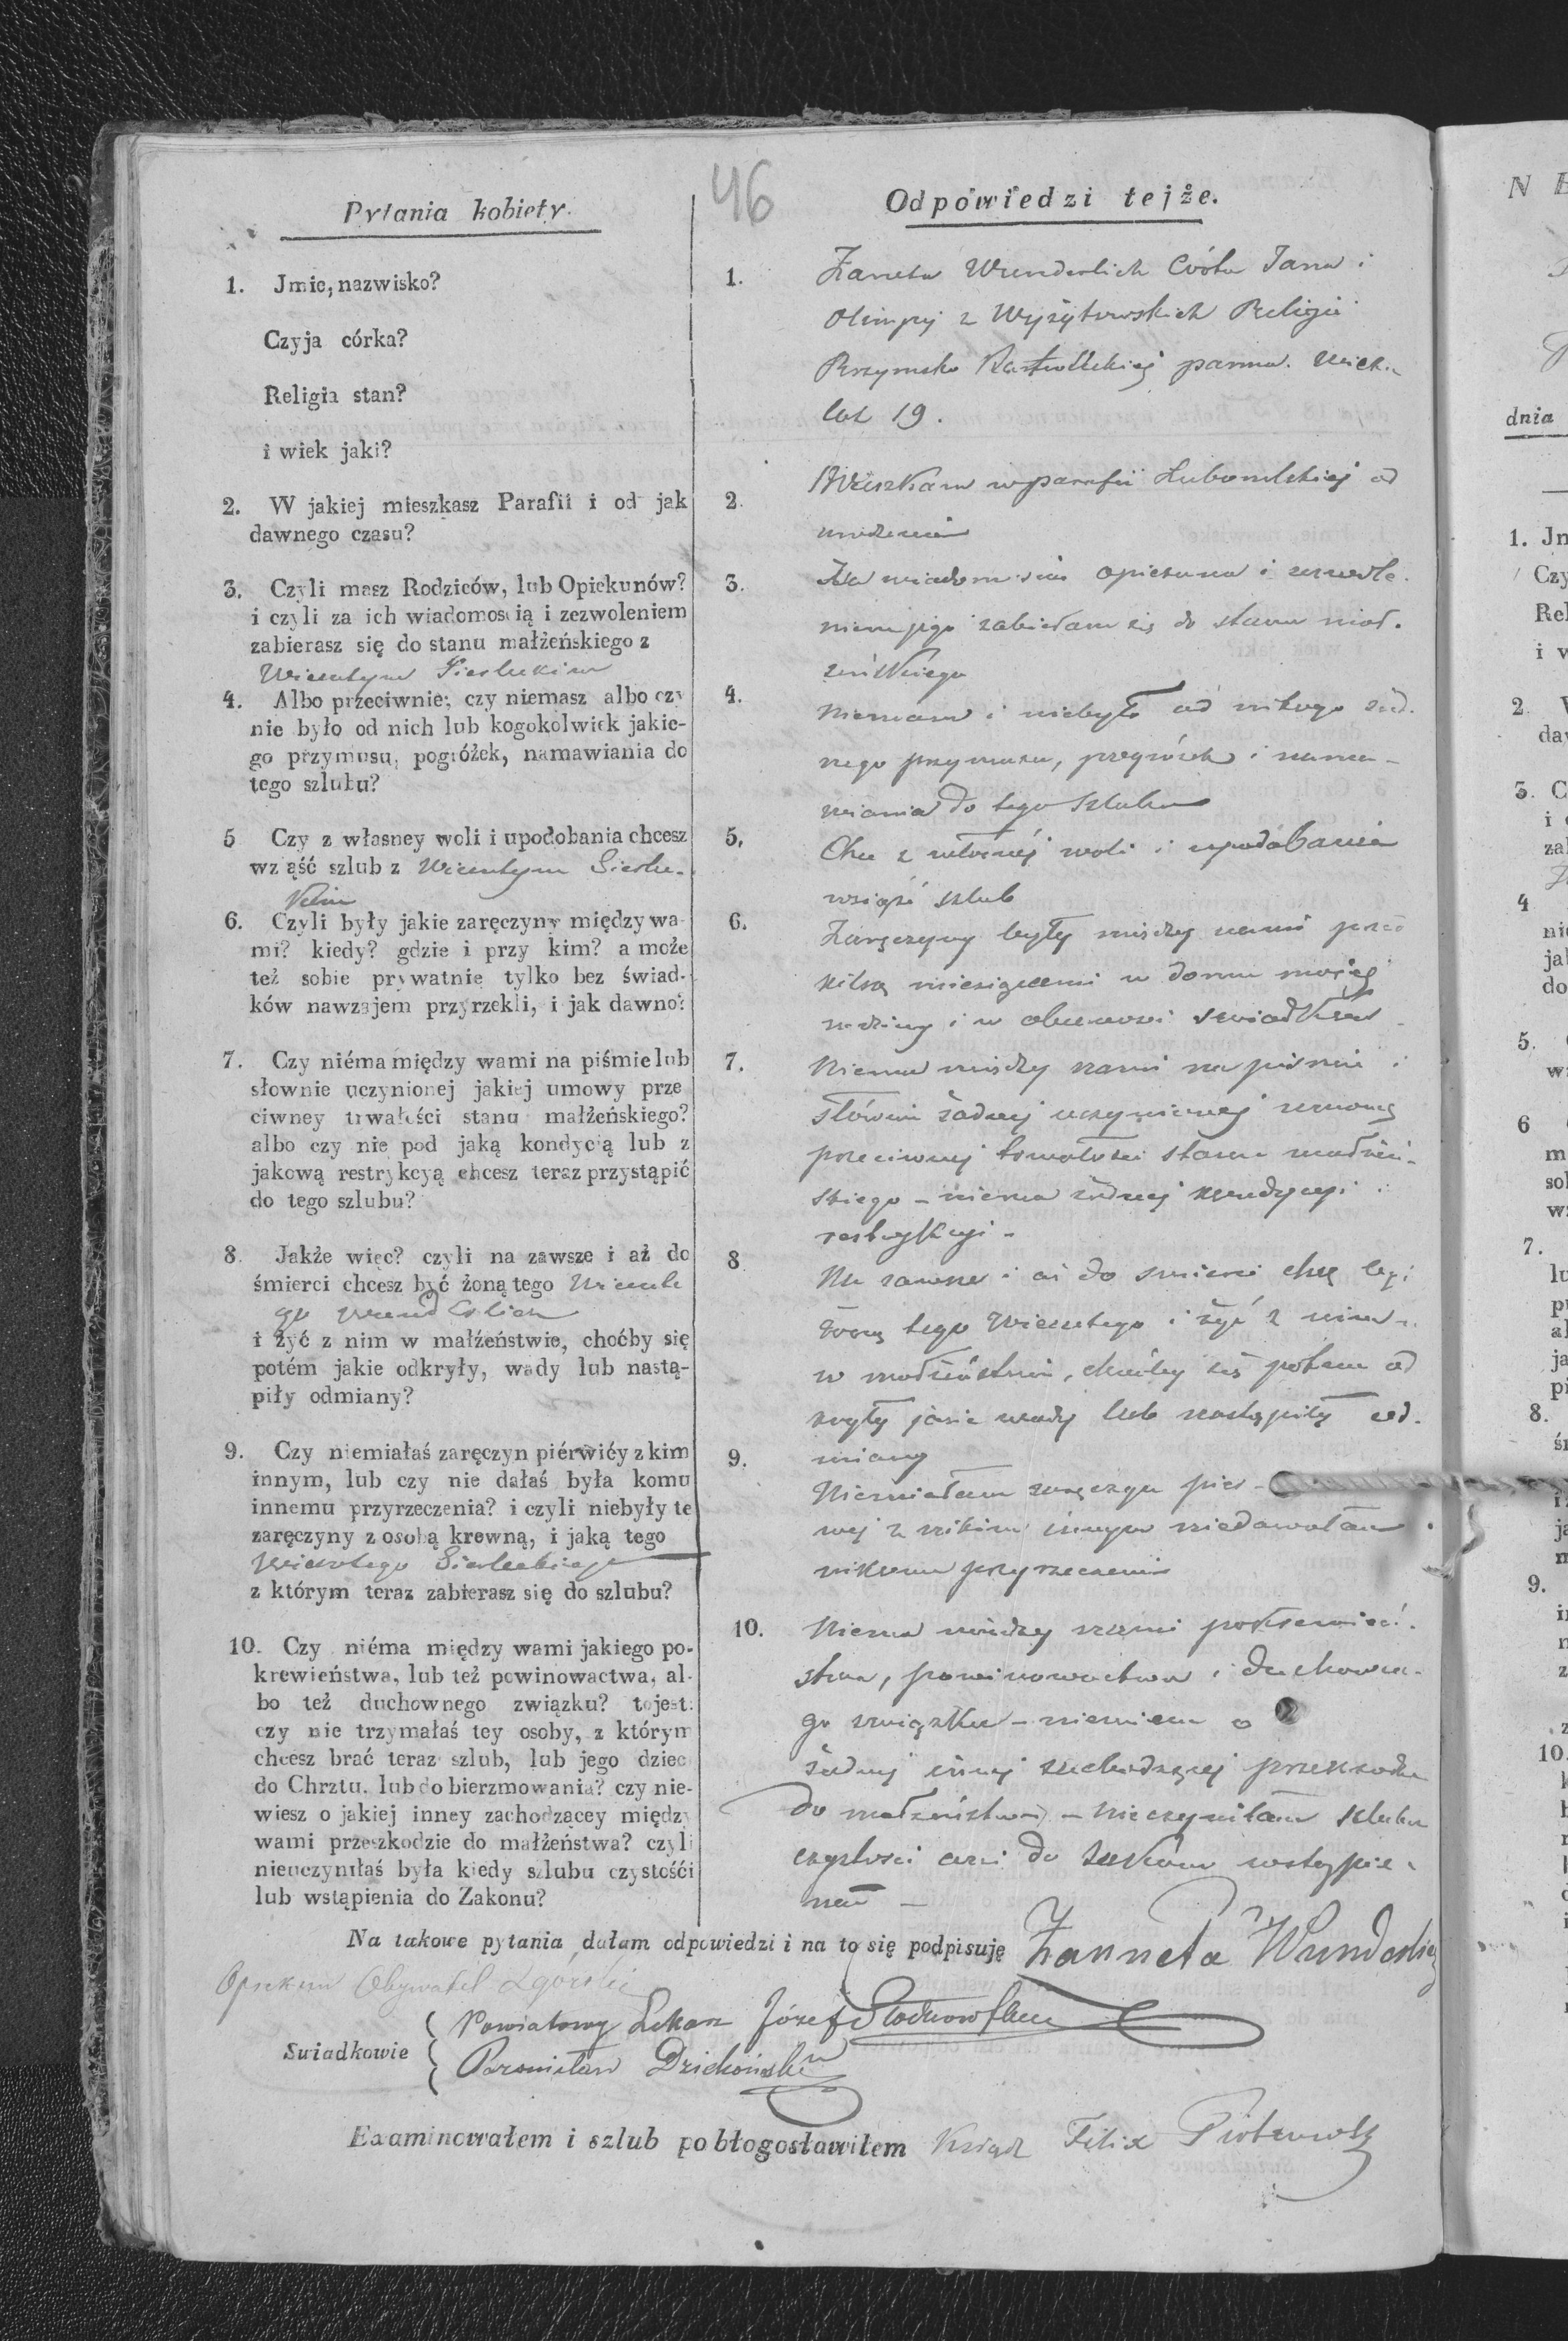 46
Pytania kobiety.
1. Jmie, nazwisko?
Czyja córka?
Religia stan?
i wiek jaki?
2. W jakiej mieszkasz Parafii i od jak
dawnego czasu?
3. Czyli masz Rodziców, lub Opiekunów?
i czyli za ich wiadomością i zezwoleniem
zabierasz się do stanu małżeńskiego z
Wicentym
4. Albo przeciwnie; czy niemasz albo czy
nie było od nich lub kogokolwiek jakie-
go przymusu, pogróżek, namawiania do
tego szlubu?
5 Czy z własney woli i upodobania chcesz
wziąść szlub z Wicentym Siedle-
ckim
6. Czyli były jakie zaręczyny między wa-
mi? kiedy? gdzie i przy kim? a może
też sobie prywatnie tylko bez świad-
ków nawzajem przyrzekli, i jak dawno?
7. Czy niéma między wami na piśmie lub
słownie uczynionej jakiej umowy prze
ciwney trwałości stanu małżeńskiego?
albo czy nie pod jaką kondycią lub z
jakową restrykcyą chcesz teraz przystąpić
do tego szlubu?
8. Jakże więc? czyli na zawsze i aż do
śmierci chcesz być żoną tego Wicente
go
i żyć z nim w małżeństwie, choćby się
potém jakie odkryły, wady lub nastą-
piły odmiany?
9. Czy niemiałaś zaręczyn piérwiéy z kim
innym, lub czy nie dałaś była komu
innemu przyrzeczenia? i czyli niebyły te
zaręczyny z osobą krewną, i jaką tego
Wicentego Siedleckiego
z którym teraz zabierasz się do szlubu?
10. Czy niéma między wami jakiego po-
krewieństwa, lub też powinowactwa, al-
bo też duchownego związku? tojest:
czy nie trzymałaś tey osoby, z którym
chcesz brać teraz szlub, lub jego dzieci
do Chrztu. lub do bierzmowania? czy nie-
wiesz o jakiej inney zachodzącey między
wami przeszkodzie do małżeństwa? czyli
nieuczyniłaś była kiedy szlubu czystośći
lub wstąpienia do Zakonu?
Odpowiedzi tejże.
1. Żaneta Wunderlich Córka Jana i
Olimpij z Wyżytowskich Religii
Rzymsko Katolickiej panna. wieku
lat 19.
2. Mieszkam w parafii Lubomlskiej od
urodzenia
3. Za wiadomością opiekuna i zezwole-
niem jego zabieram się do stanu mał-
żeńskiego
4. Niemam i niebyło od nikogo żad-
nego przymusu, pogróżek i nama-
wiania do tego szlubu
5. Chcę z własnéj woli i upodobania
wziąść szlub
6. Zaręczyny były między nami przed
kilką miesiącami w domu mojej
rodziny i w obecności swiadków
7. Niema między nami na piśmie i
słównie żadnej uczynionej umowy
przeciwnej trwałości stanu małżeń-
skiego - niema żadnej kondycyi i
restrykcyi -
8 Na zawsze i aż do smierci chcę być
żoną tego Wicentego i żyć z nim
w małżeństwie, choćby się potem od
kryły jakie wady lub nastąpiły od-
miany
9. Niemiałam zaręczyn pier-
wej z nikim innym niedawałam
nikomu przyrzeczenia
10. Niema między nami pokrewień-
stwa, powinowactwa i duchowne-
go związku - niewiem o
żadnej innej zachodzącej przeszkodzie
do małżeństwa - nieczyniłam szlubu
czystości ani do zakonu wstąpie-
nia -
Na takowe pytania dałam odpowiedzi i na to się podpisuję Żanneta Wunderlich
Opiekun Obywatel Zgórski
Swiadkowie
Powiatowy Lekarz Józef
Bronisław Dziekoński
Examinowałem i szlub pobłogosławiłem Ksiądz Felix Piotrowski
N E
dnia
1. Jn
Czy
Rel
i w
2
da
3. C
4
5.
6
7.
8.
9.
10.